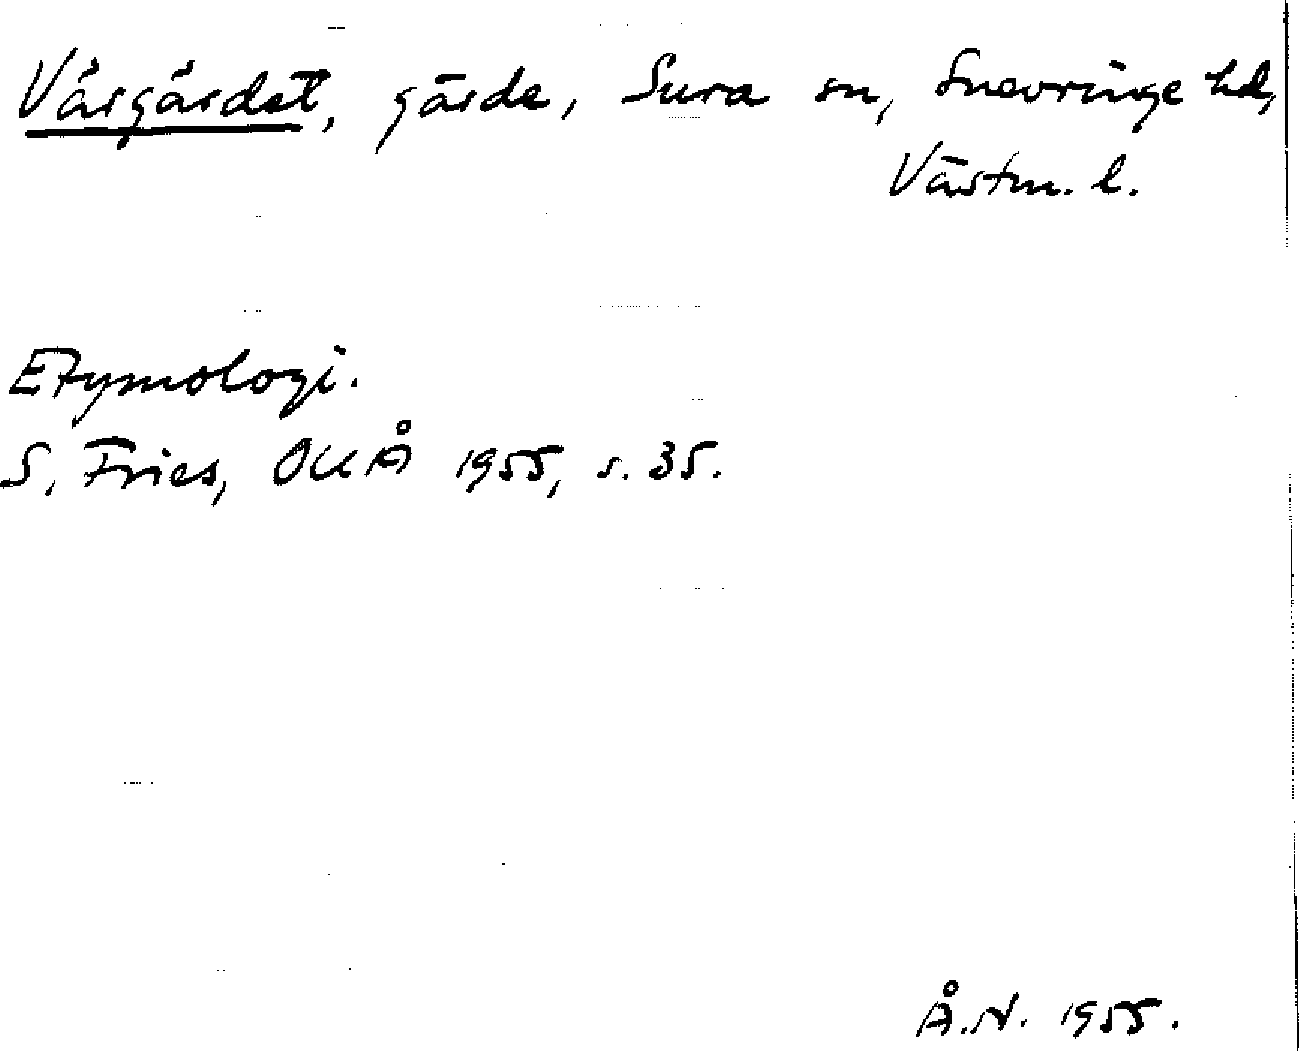 Vårgårdet, gärde, Sura sn, Snevringe hd,
Västm. l.
Etymologi.
S. Fries, OUÅ 1955, s. 35.
Å.N. 1955.